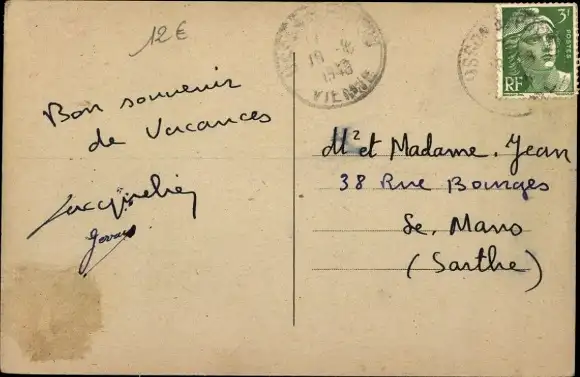 12€
Bon souvenir
de Vacances
Jacqueline
Gervais
1948
VIENNE
3f
POSTES
RF
Mr et Madame. Jean
38 Rue Bourges
Le. Mans
(Sarthe)